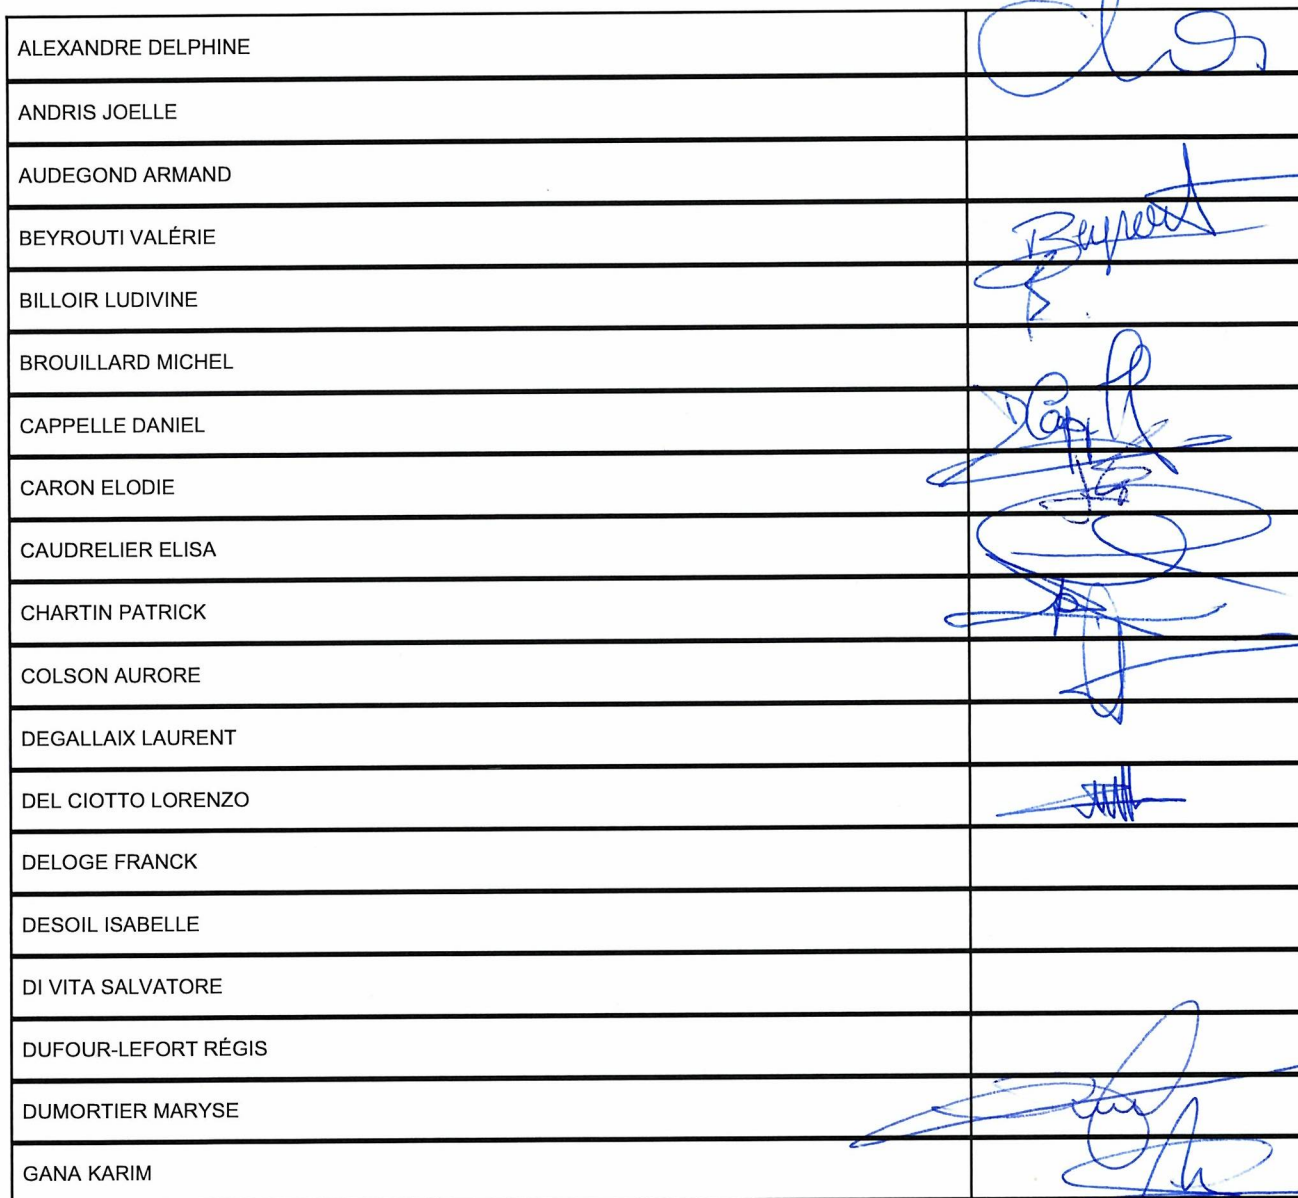 ALEXANDRE DELPHINE
ANDRIS JOELLE
AUDEGOND ARMAND
BEYROUTI VALÉRIE
BILLOIR LUDIVINE
BROUILLARD MICHEL
CAPPELLE DANIEL
CARON ELODIE
CAUDRELIER ELISA
CHARTIN PATRICK
COLSON AURORE
DEGALLAIX LAURENT
DEL CIOTTO LORENZO
DELOGE FRANCK
DESOIL ISABELLE
DI VITA SALVATORE
DUFOUR-LEFORT RÉGIS
DUMORTIER MARYSE
GANA KARIM